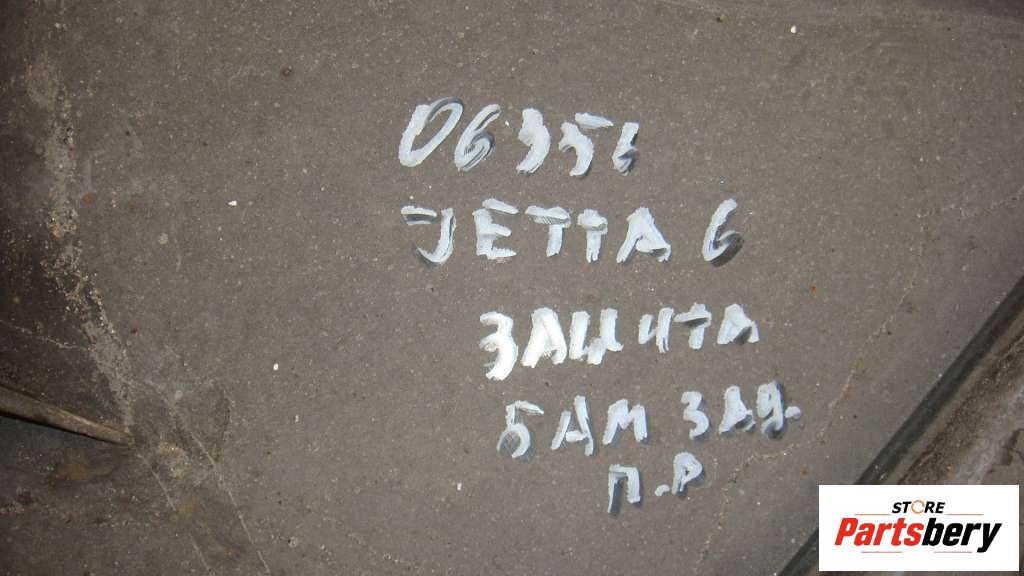 06956
JETTA 6
ЗАЩИТА
БАМ ЗАД.
П.Р
STORE
Partsbery